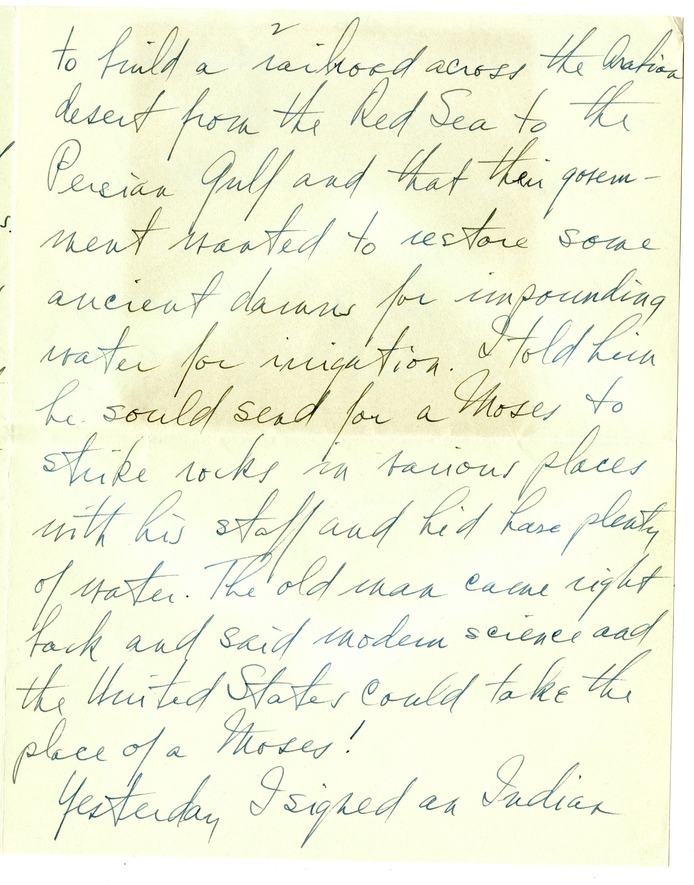 2
to build a railroad across the Arabian
desert from the Red Sea to the
Persian Gulf and that their govern-
ment wanted to restore some
ancient damns for impounding
water for irrigation. I told him
he sould send for a Moses to
strike rocks in various places
with his staff and he'd have plenty
of water. The old man came right
back and said modern science and
the United States could take the
place of a Moses!
Yesterday I signed an Indian